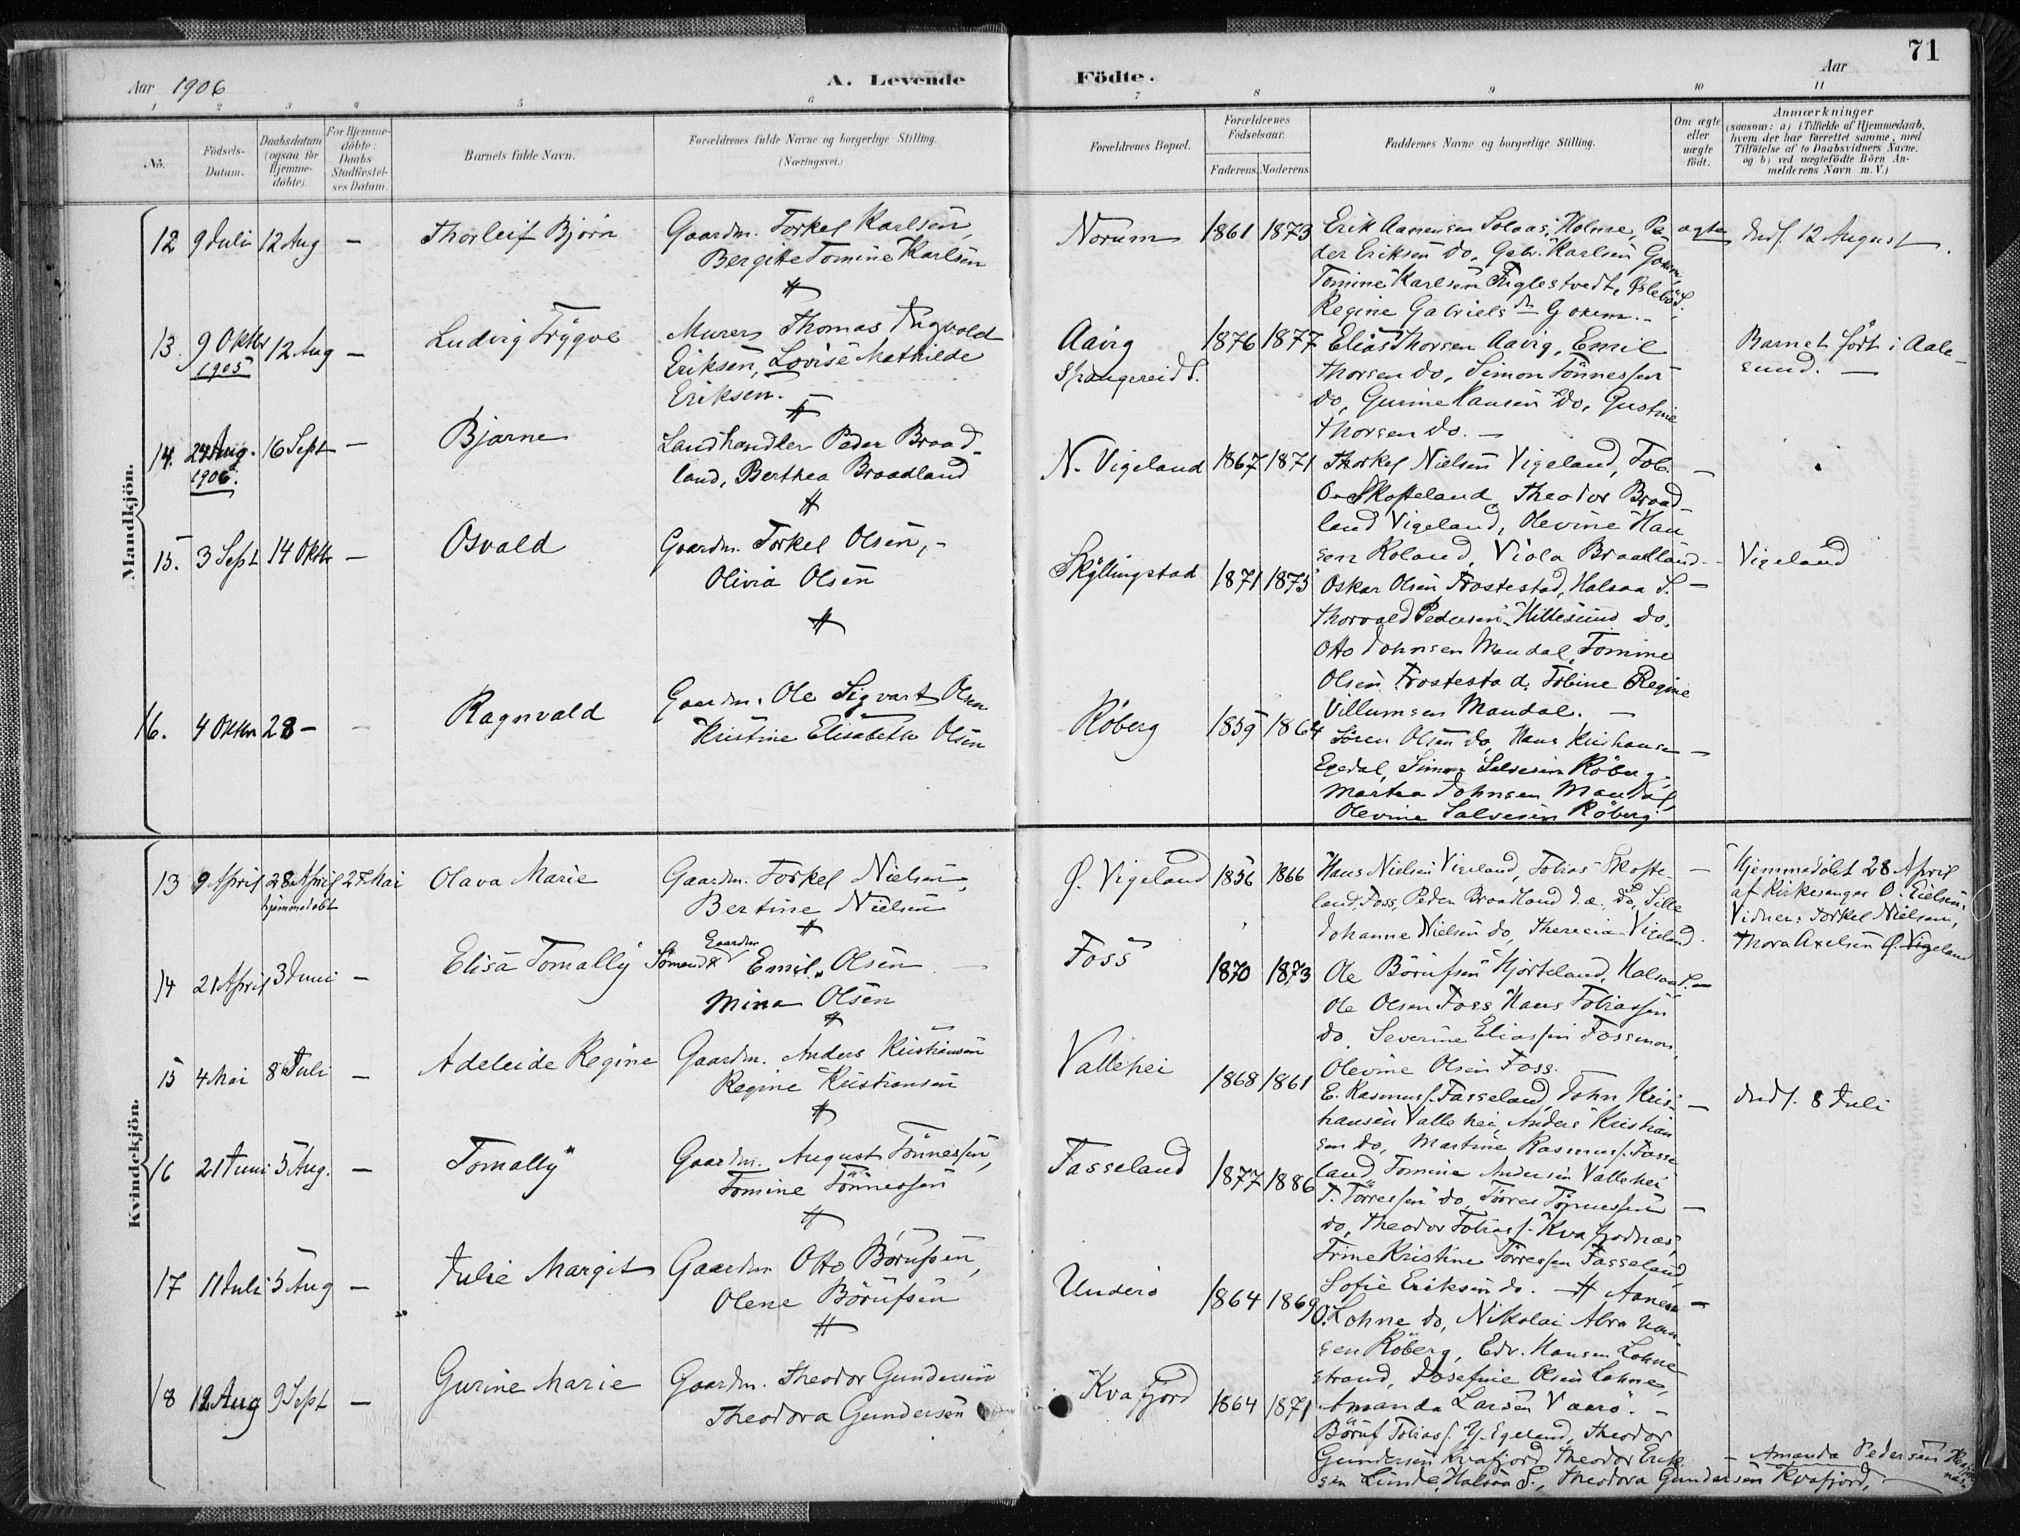 71
Aar 1906
A. Levende
Födte.
Aar
1 2 3 4 5 6 7 8 9 10 11
No.
Födsels-Datum.
Daabsdatum (ogsaa for Hjemme-döbte).
For Hjemme-döbte: Daabs-Stadfæstel-ses Datum.
Barnets fulde Navn.
Forældrenes fulde Navne og borgerlige Stilling. (Næringsvei.)
Forældrenes Bopæl.
Forældrenes Födselsaar.
Faderens. Moderens.
Faddernes Navne og borgerlige Stilling.
Om ægte eller uægte födt.
Anmærkninger
(saasom: a) i Tilfælde af Hjemmedaab,
hvem der har forrettet samme, med
Tilföielse af to Daabsvidners Navne,
og b) ved uægtefödte Börn An-
melderens Navn m. V.)
Mandkjön.
12 9 Juli 12 Aug – Thorleif Bjørn
Gaardm. Torkel Karlsen,
Bergitte Tomine Karlsen
Norum 1861 1873
Erik Aanensen Solaas, Holme, Pe
der Eriksen do, Gabr. Karlsen Goksem,
Tomine Karlsen Fuglestvedt, Øslebø S.
Regine Gabriels dtr Goksem. –
ægte
Indf. 12 August.
13. 9 Oktbr 1905 12 Aug – Ludvig Trygve
Murer Thomas Ingvald
Eriksen, Lovise Mathilde
Eriksen. –
Aavig
Spangereid S.
1876 1877
Elias Thorsen Aavig, Emil
Thorsen do, Simon Tönnessen
do, Gunne Hansen do, Gustine
Thorsen do. –
Barnet født i Aale-
sund. –
14. 24 Aug. 1906. 16 Sept – Bjarne
Landhandler Peder Braad-
land, Berthea Braadland
N. Vigeland 1867 1871
Thorkel Nielsen Vigeland, Tob.
O. Skofteland, Theodor Braad-
land Vigeland, Olevine Han
sen Roland, Viola Braadland –
Vigeland
15. 3 Sept 14 Oktbr – Osvald
Gaardm. Torkel Olsen, –
Olivia Olsen
Skjllingstad 1871 1875
Oskar Olsen Frostestad, Halsaa S. –
Thorvald Pedersen Hillesund do,
Otto Johnsen Mandal, Tomine
Olsen Frostestad, Tobine Regine
Villumsen Mandal. –
16. 4 Oktbr 28 – – Ragnvald
Gaardm. Ole Sigvart Olsen
Kristine Elisabeth Olsen
Röberg 1859 1864
Sören Olsen do, Hans Kristiansen –
Egedal, Simon Salvesen Röberg,
Martea Johnsen Mandal,
Olevine Salvesen Röberg
Kvindekjön.
13 9 April 28 April hjemmedøbt 27 Mai Olava Marie
Gaardm. Torkel Nielsen,
Bertine Nielsen
Ø. Vigeland 1856 1866
Hans Nielsen Vigeland, Tobias Skofte-
land, Foss, Peder Braadland d.æ. do, Sille
Johanne Nielsen do, Therecia Vigeland.
Hjemmedöbt 28 April
af Kirkesanger O. Eilsen.
Vidner: Torkel Nielsen,
Thora Axelsen Ø. Vigeland
14 21 April 3 Juni – Elisa Tomally
Sömand Gaardm Emil Olsen
Mina Olsen
Foss 1870 1873
Ole Börufsen Hjorteland, Halsaa S. –
Ole Olsen Foss, Hans Tobiassen
do. Severine Eliassen Fossmon,
Olevine Olsen Foss.
15 4 Mai 8 Juli – Adeleide Regine
Gaardm. Anders Kristiansen
Regine Kristiansen
Vallehei 1868 1861
E. Rasmuss. Fasseland, John Kris-
tiansen Vallehei, Anders Kristian
sen do, Martine Rasmuss. Fasse
land, Tomine Andersen Vallehei
Indf. 8 Juli
16 21 Juni 5 Aug. – Tomally
Gaardm. August Tönnessen,
Tomine Tönnessen
Fasseland 1877 1886
T. Törressen do, Törres Tönnessen –
do, Theodor Tobiass. Kvafjordnæs,
Trine Kristine Törressen Fasseland,
Sofie Eriksen do.
17 11 Juli 5 Aug – Julie Margit
Gaardm Otto Börufsen,
Olene Börufsen
Underö 1864 1869
Aanen –
O. Lohne do, Nikolai Abraham
sen Röberg, Edv. Hansen Lohne
strand, Josefine Olsen Lohne,
Amanda Larsen Vaarö. –
18 12 Aug 9 Sept – Gurine Marie
Gaardm. Theodor Gundersen
Theodora Gundersen
Kvafjord 1864 1871
Böruf Tobiass. Y. Egeland, Theodor
Gundersen Kvafjord, Theodor Erik-
sen Lunde, Halsaa S., Theodora Gundersen Kvafjord,
– Amanda Pedersen